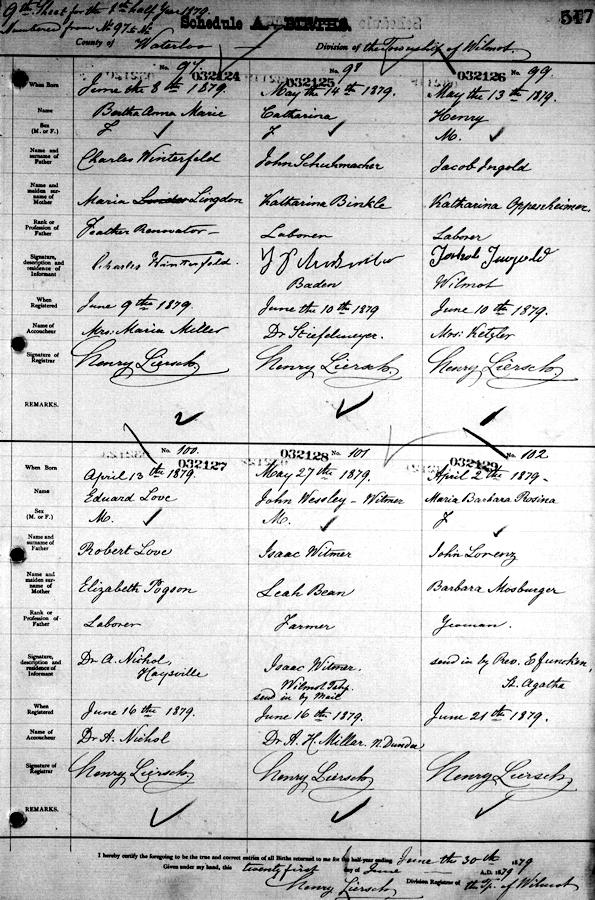 9th Sheet for the 1st half Year 1879.
Numbered from No 97 to
Schedule A. BIRTHS.
517
County of Waterloo
Division of the Township of Wilmot.
No. 97 No. 98 No. 99
032124 032125 032126
When Born June the 8th 1879 May the 14th 1879. May the 13th 1879.
Name Bertha Anna Marie Catharina Henry
Sex (M. or F.) F F M.
Name and surname of Father Charles Winterfeld John Schuhmacher Jacob Ingold
Name and maiden surname of Mother Maria Lingdon Katharina Binkle Katharina Oppesheimer
Rank or Profession of Father Feather Renovator Laborer Laborer
Signature, description and residence of Informant Charles Winterfeld.
Baden Wilmot
When Registered June 9th 1879. June the 10th 1879 June 10th 1879.
Name of Accoucheur Mrs. Maria Miller Dr Stiefelmeyer. Mrs. Ketzler
Signature of Registrar Henry Liersch Henry Liersch Henry Liersch
REMARKS.
2 1
No. 100 No. 101 No. 102
032127 032128 032129
When Born April 13th 1879. May 27th 1879. April 2th 1879-
Name Eduard Love John Weseley - Witmer Maria Barbara Rosina
Sex (M. or F.) M. M. F
Name and surname of Father Robert Love Isaac Witmer John Lorenz
Name and maiden surname of Mother Elizabeth Pogson Leah Bean Barbara Mosburger
Rank or Profession of Father Laborer Farmer Yeoman.
Signature, description and residence of Informant Dr A. Nichol, Isaac Witmer. send in by Rev. E Funcken,
Haysville Wilmot Tshp. St. Agatha
send in by Mail
When Registered June 16th 1879. June 16th 1879. June 21th 1879.
Name of Accoucheur Dr A. Nichol Dr. A. H. Millar. N. Dundee
Signature of Registrar Henry Liersch Henry Liersch Henry Liersch
REMARKS.
I hereby certify the foregoing to be the true and correct entries of all Births returned to me for the half-year ending June the 30th 1879
Given under my hand, this twenty first day of June A.D. 1879
Henry Liersch Division Registrar of the Tp. of Wilmot